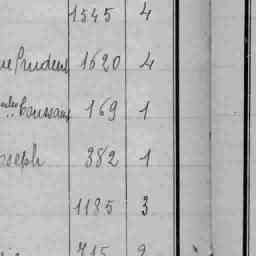 1545 4
Prudent 1620 4
Toussaint 169 1
oseph 382 1
1185 3
715 2